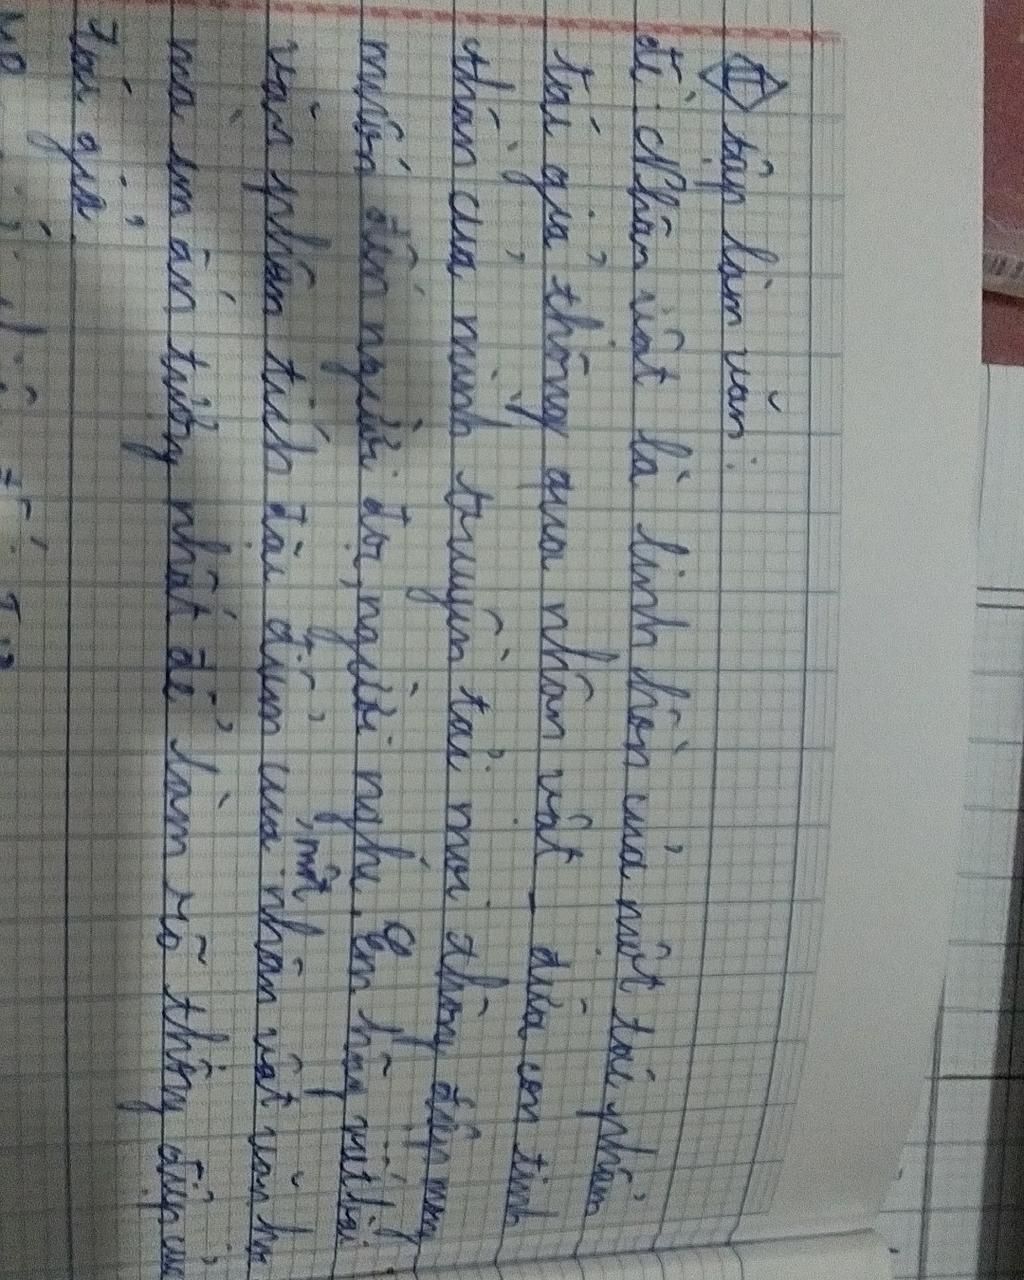 II tập làm văn:
đề: Nhân vật là linh hồn của một tác phẩm
tác giả thông qua nhân vật - đứa con tinh
thần của mình truyền tải mọi thông điệp mong
muốn đến người đọc, người nghe. Em hãy viết bài
văn phân tích đặc điểm của một nhân vật văn học
mà em ấn tượng nhất để làm rõ thông điệp của
tác giả.